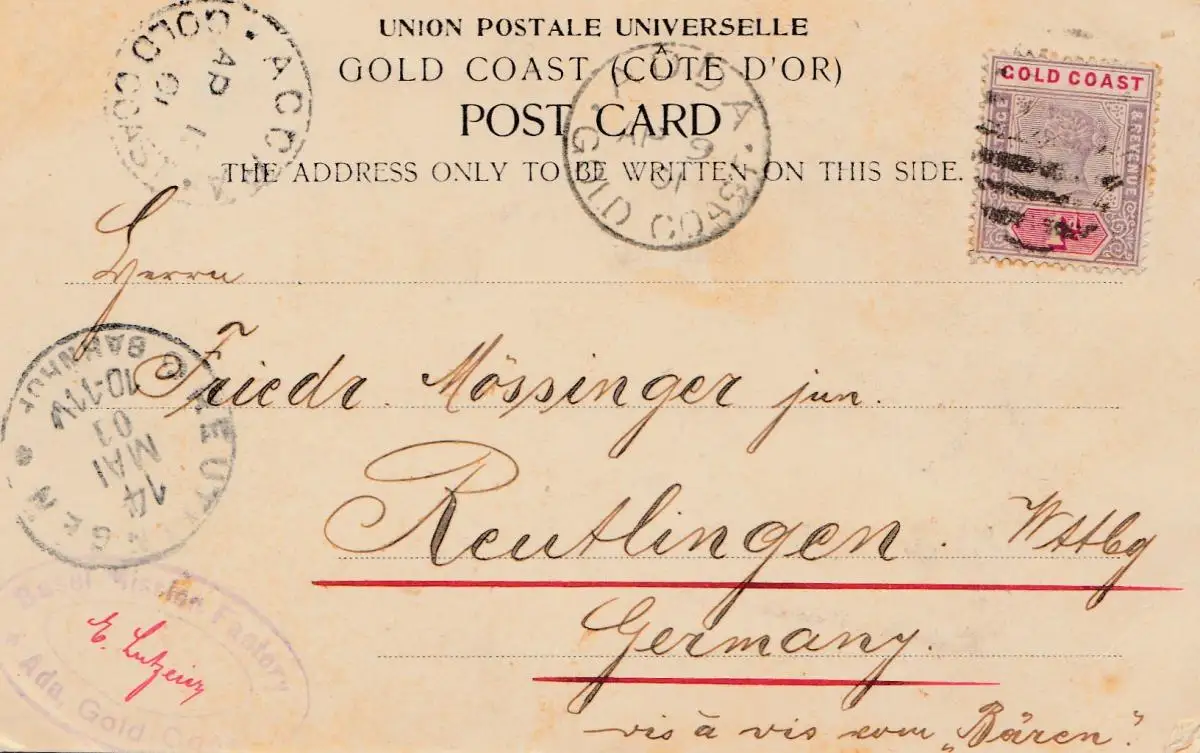 UNION POSTALE UNIVERSELLE
GOLD COAST (CÔTE D'OR)
POST CARD
THE ADDRESS ONLY TO BE WRITTEN ON THIS SIDE.
ACCRA
AP
01
GOLD COAST
ADDA
AP 9
01
GOLD COAST
GOLD COAST
& REVENUE
1d
Herrn
Friedr. Mössinger jun.
Reutlingen. Wttbg
Germany.
vis à vis vom „Bären".
REUTLINGEN
BAHNHOF
10-11V
14
MAI
01
Basel Mission Factory
Ada, Gold Coast
E. Lutzeier